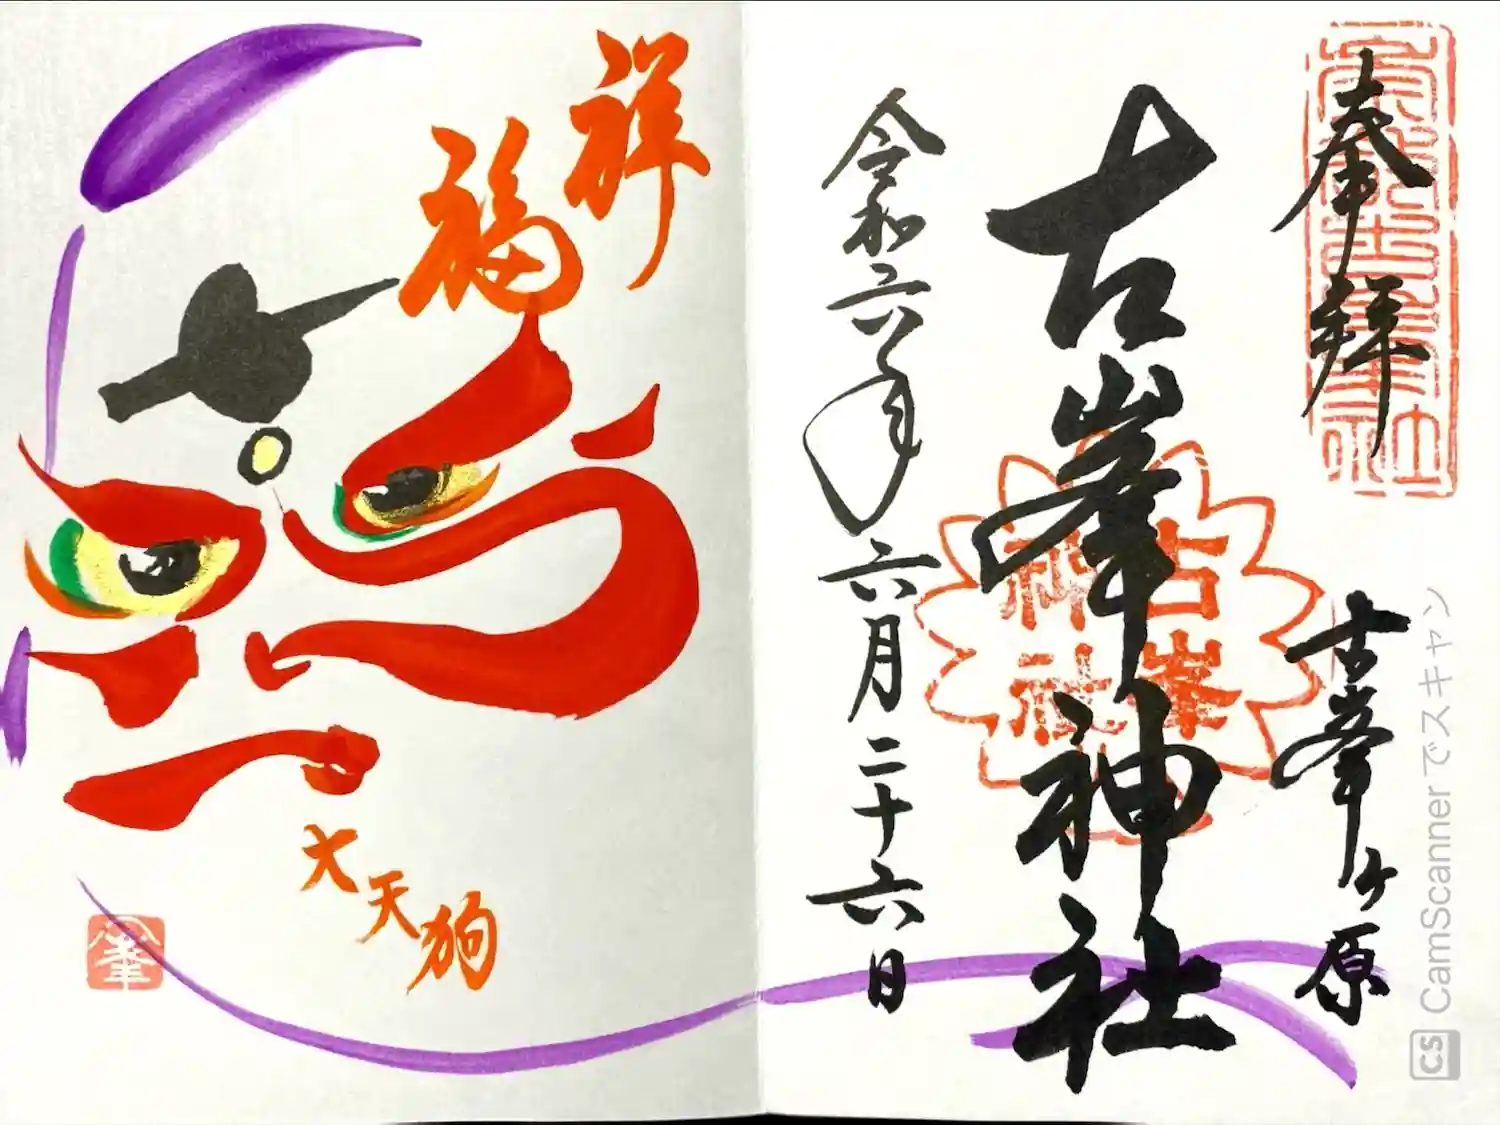 奉拝
古峯ヶ原
古峯神社
古峯
神社
令和六年
六月二十六日
祥
福
大天狗
CamScannerでスキャン
CS